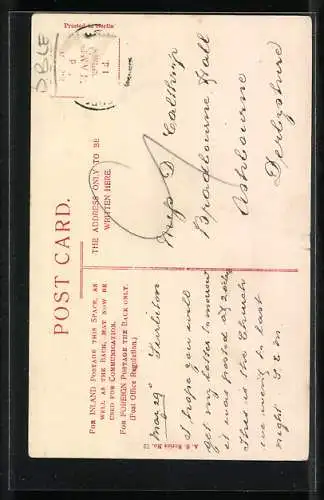 Printed in Berlin
POST CARD.
For INLAND Postage this Space, as
well as the Back, may now be
used for Communication.
For FOREIGN Postage the Back only.
(Post Office Regulation.)
THE ADDRESS ONLY TO BE
WRITTEN HERE.
STAMP
1d.
May 29th Surbiton
I hope you will
get my letter tomorrow
it was posted at
This is the Church
we went to last
night.
Miss D. Calthrop
Bradbourne Hall
Ashbourne
Derbyshire
A. S. Series No. 72